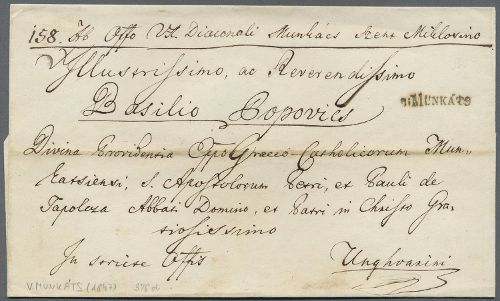 158. Ab Offo V. A. Diaconali Munkács Szent Miklosino
Illustrissimo, ac Reverendissimo
Basilio Popovics
v. MUNKÁTS
Divina Providentia Eppo Graeco-Catholicorum Mun=
katsiensi, S. Apostolorum Petri, et Pauli de
Tapolcza Abbati Domino, et Patri in Christo Gra=
tiosissimo
In sericie Offis
Unghvarini
V. MUNKÁTS (1847)